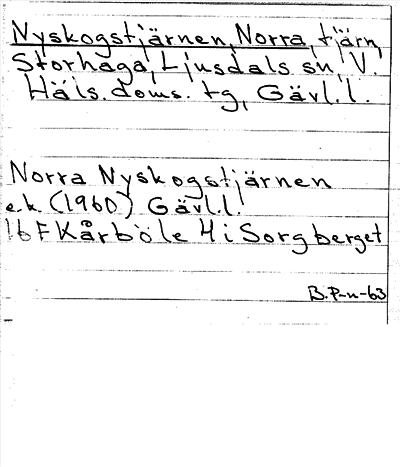 Nyskogstjärnen, Norra, tjärn,
Storhaga, Ljusdals sn, V.
Häls. doms. tg, Gävl. l.
Norra Nyskogstjärnen
e.k. (1960) Gävl. l.
16 F Kårböle 4 i Sorgberget
B. P-n-63